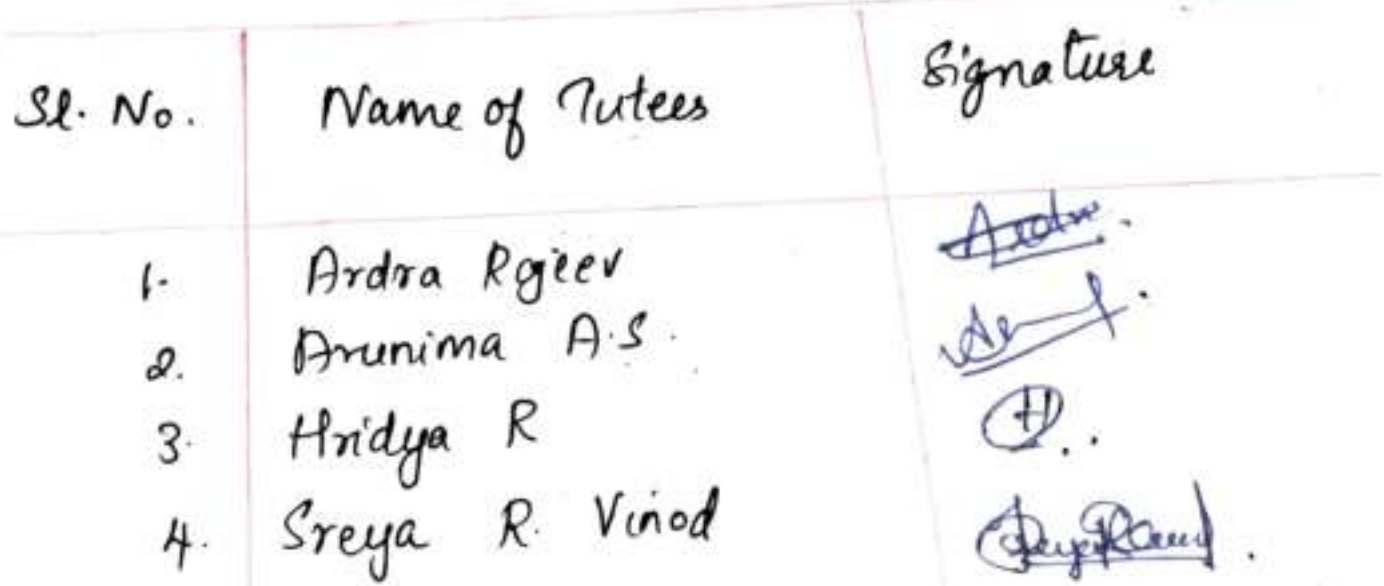 Sl. No. Name of Tutees Signature
1. Ardra Rajeev Ardra.
2. Arunima A.S.
3. Hridya R H..
4. Sreya R. Vinod